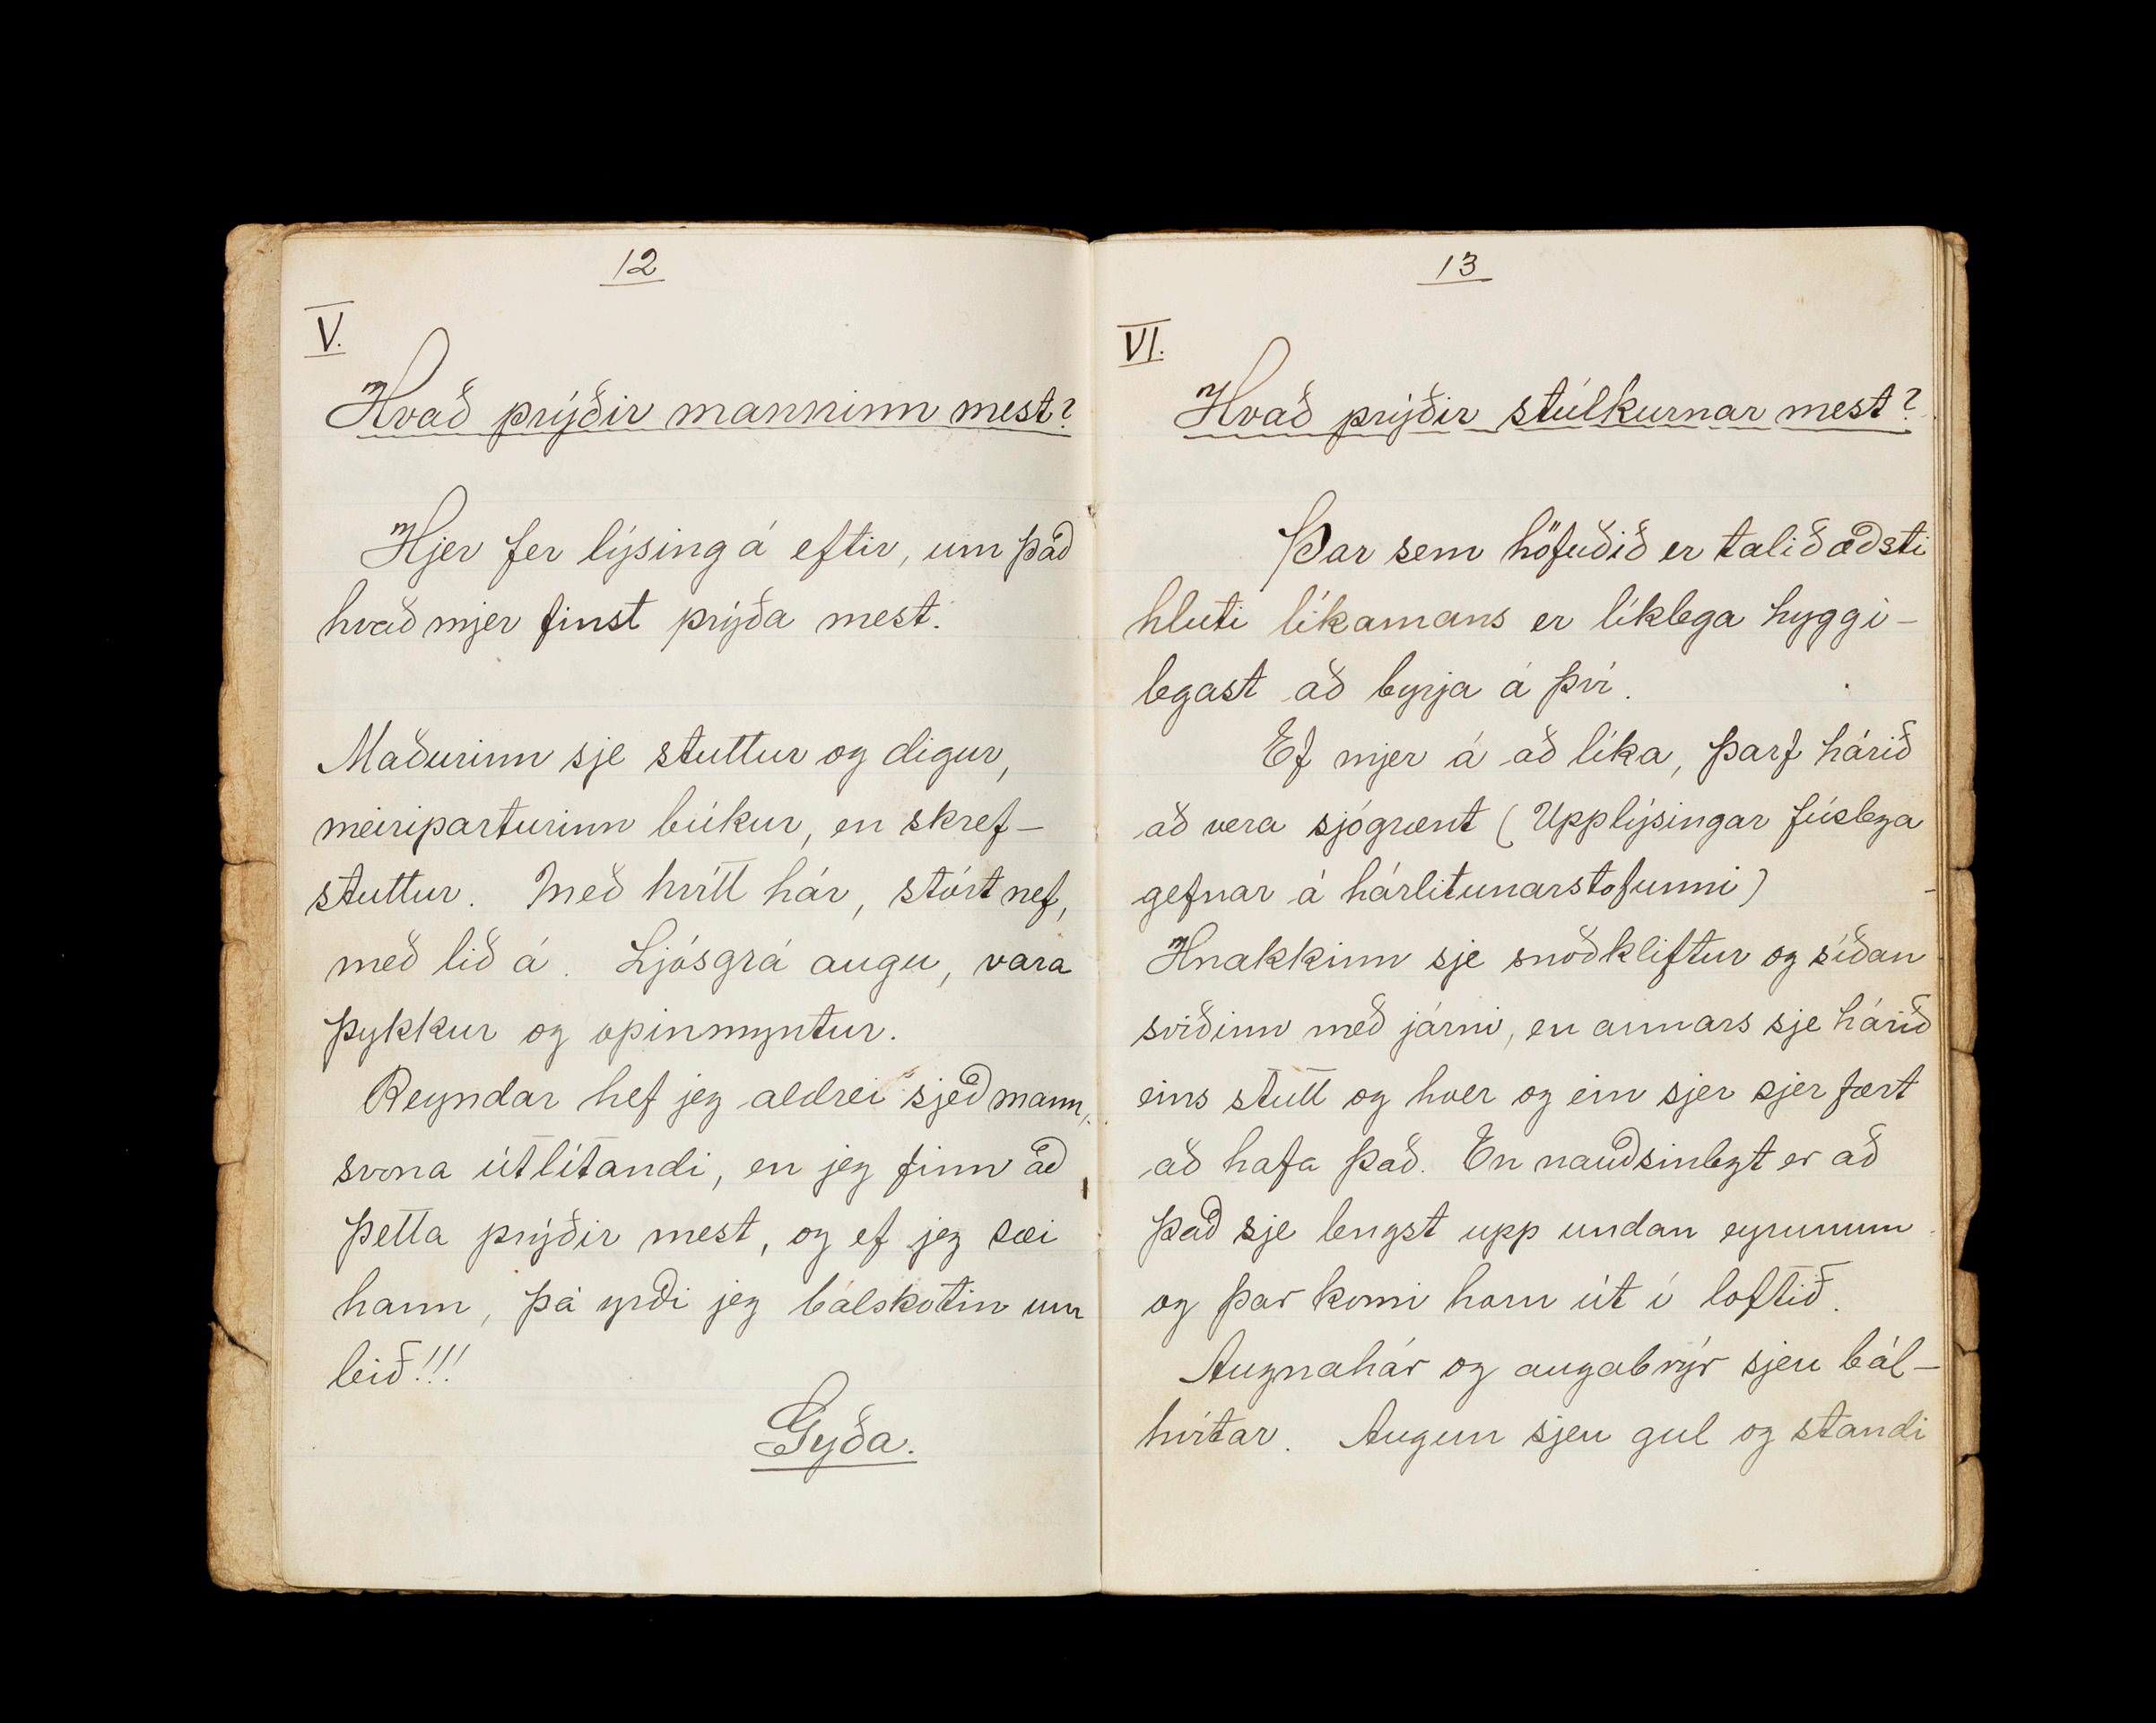 12
V.
Hvað prýðir manninn mest?
Hjer fer lýsing á eftir, um það
hvað mjer finst prýða mest.
Maðurinn sje stuttur og digur,
meiriparturinn búkur, en skref-
stuttur. Með hvítt hár, stórt nef,
með lið á. Ljósgrá augu, vara
þykkur og opinmyntur.
Reyndar hef jeg aldrei sjeð mann,
svona útlítandi, en jeg finn að
þetta prýðir mest, og ef jeg sæi
hann, þá yrði jeg bálskotin um
leið!!!
Gyða.
13
VI.
Hvað prýðir stúlkurnar mest?
Þar sem höfuðið er talið æðsti
hluti líkamans er líklega hyggi-
legast að byrja á því.
Ef mjer á að líka, þarf hárið
að vera sjógrænt (Upplýsingar fúslega
gefnar á hárlitunarstofunni)
Hnakkinn sje snoðkliftur og síðan
sviðinn með járni, en annars sje hárið
eins stutt og hver og ein sjer sjer fært
að hafa það. En nauðsinlegt er að
það sje lengst upp undan eyrunum
og þar komi horn út í loftið.
Augnahár og augabrýr sjeu bál-
hvítar. Augun sjeu gul og standi